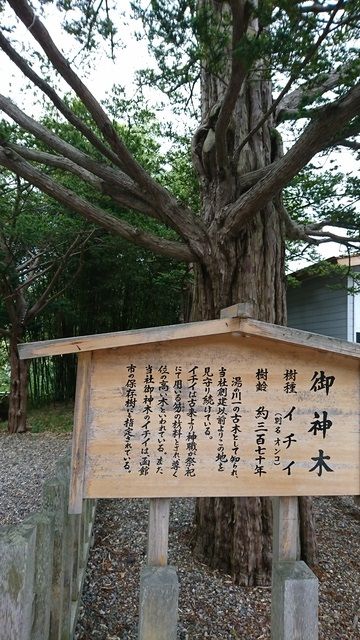 御神木
樹種 イチイ
(別名 オンコ)
樹齢 約三百七十年
湯の川一の古木として知られ、
当社創建以前よりこの地を
見守り続けている。
イチイは古来より神職が祭祀
にて用いる笏の材料とされ、尊く
位の高い木といわれている。また、
当社御神木のイチイは、函館
市の保存樹に指定されている。